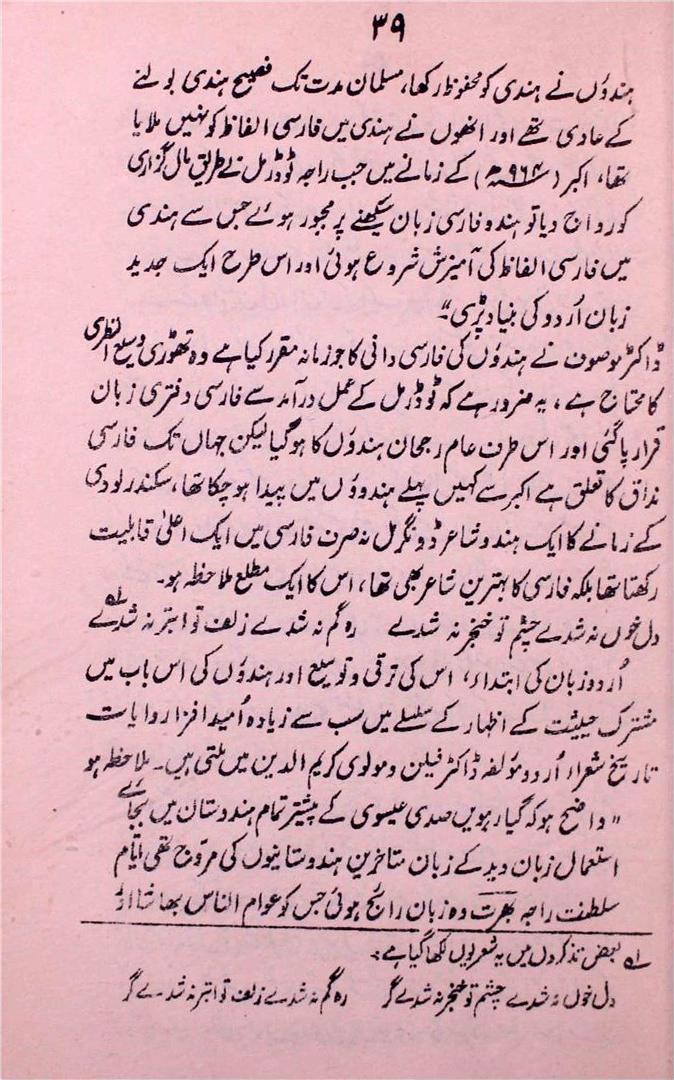 ۳۹
ہندوُں نے ہندی کو محفوظ رکھا، مسلمان مدت تک فصیح ہندی بولنے
کے عادی تھے اور انھوں نے ہندی میں فارسی الفاظ کو نہیں ملایا
تھا، اکبر (۹۶۴ھ) کے زمانے میں جب راجہ ٹوڈرمل نے طریق مال گزاری
کو رواج دیا تو ہندو فارسی زبان سیکھنے پر مجبور ہوئے جس سے ہندی
میں فارسی الفاظ کی آمیزش شروع ہوئی اور اس طرح ایک جدید
زبان اُردو کی بنیاد پڑی۔"
ڈاکٹر موصوف نے ہندوُں کی فارسی دانی کا جو زمانہ مقرر کیا ہے وہ تھوڑی وسیع النظری
کا محتاج ہے، یہ ضرور ہے کہ ٹوڈرمل کے عمل درآمد سے فارسی دفتری زبان
قرار پا گئی اور اس طرف عام رجحان ہندوُں کا ہوگیا لیکن جہاں تک فارسی
مذاق کا تعلق ہے اکبر سے کہیں پہلے ہندووُں میں پیدا ہو چکا تھا، سکندر لودی
کے زمانے کا ایک ہندو شاعر ڈونگرمل نہ صرف فارسی میں ایک اعلیٰ قابلیت
رکھتا تھا بلکہ فارسی کا بہترین شاعر بھی تھا، اس کا ایک مطلع ملاحظہ ہو۔
دل خوں نہ شدے چشم تو خنجر نہ شدے رہ گم نہ شدے زلف تو ابتر نہ شدے لہ
اُردو زبان کی ابتداء، اس کی ترقی و توسیع اور ہندوُں کی اس باب میں
مشترک حیثیت کے اظہار کے سلسلے میں سب سے زیادہ اُمید افزا روایات
تاریخ شعراء اُردو مولفہ ڈاکٹر فیلن و مولوی کریم الدین میں ملتی ہیں۔ ملاحظہ ہو
"واضح ہو کہ گیارہویں صدی عیسوی کے پیشتر تمام ہندوستان میں بجائے
استعمال زبان وید کے زبان متاخرین ہندوستانیوں کی مروّج تھی ایّام
سلطنت راجہ بھرت وہ زبان رائج ہوئی جس کو عوام الناس بھاشا از
لہ بعض تذکروں میں یہ شعر یوں لکھا گیا ہے:۔
دل خوں نہ شدے چشم تو خنجر نہ شدے گر رہ گم نہ شدے زلف تو ابتر نہ شدے گر